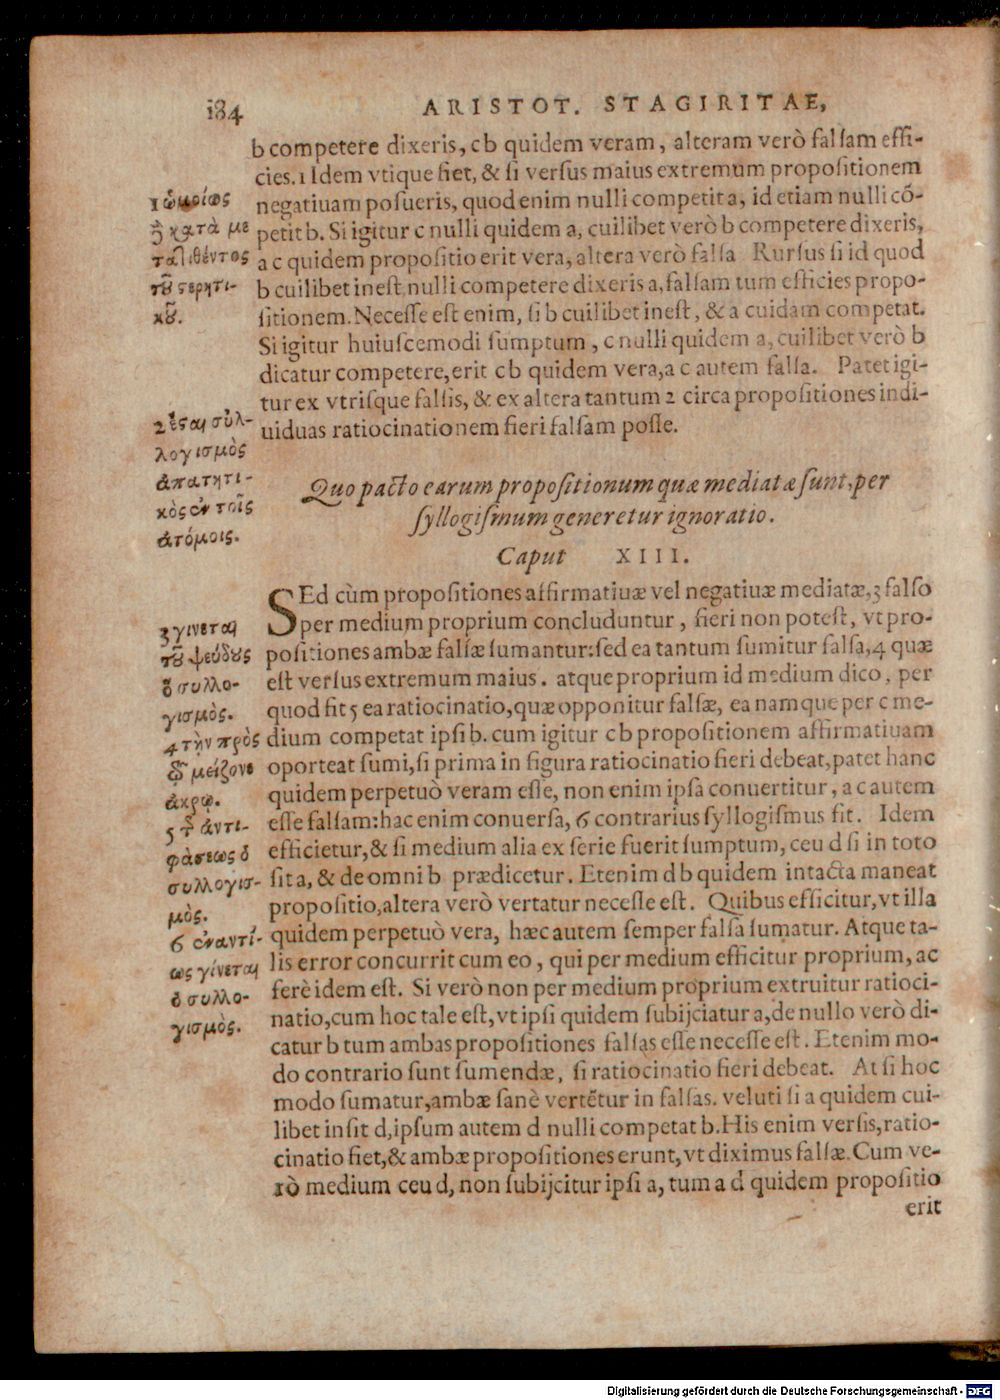 184
ARISTOT. STAGIRITAE,
b competere dixeris, c b quidem veram, alteram verò falsam effi-
cies. 1 Idem vtique fiet, & si versus maius extremum propositionem
negatiuam posueris, quod enim nulli competit a, id etiam nulli cō-
petit b. Si igitur c nulli quidem a, cuilibet verò b competere dixeris,
a c quidem propositio erit vera, altera verò falsa Rursus si id quod
b cuilibet inest nulli competere dixeris a, falsam tum efficies propo-
sitionem. Necesse est enim, si b cuilibet inest, & a cuidam competat.
Si igitur huiuscemodi sumptum, c nulli quidem a, cuilibet verò b
dicatur competere, erit c b quidem vera, a c autem falsa. Patet igi-
tur ex vtrisque falsis, & ex altera tantum 2 circa propositiones indi-
uiduas ratiocinationem fieri falsam posse.
1 ὡμοίως
ἢ κατὰ με
ταλιθέντος
τοῦ στερητι-
κοῦ.
2 ἔςαι συλ-
λογισμὸς
ἀπατητι-
κὸς ἐν τοῖς
ἀτόμοις.
Quo pacto earum propositionum quæ mediatæ sunt, per
syllogismum generetur ignoratio.
Caput XIII.
SEd cùm propositiones affirmatiuæ vel negatiuæ mediatæ, 3 falso
per medium proprium concluduntur, fieri non potest, vt pro-
positiones ambæ falsæ sumantur: sed ea tantum sumitur falsa, 4 quæ
est versus extremum maius. atque proprium id medium dico, per
quod fit 5 ea ratiocinatio, quæ opponitur falsæ, ea namque per c me-
dium competat ipsi b. cum igitur c b propositionem affirmatiuam
oporteat sumi, si prima in figura ratiocinatio fieri debeat, patet hanc
quidem perpetuò veram esse, non enim ipsa conuertitur, a c autem
esse falsam: hac enim conuersa, 6 contrarius syllogismus fit. Idem
efficietur, & si medium alia ex serie fuerit sumptum, ceu d si in toto
sit a, & de omni b prædicetur. Etenim d b quidem intacta maneat
propositio, altera verò vertatur necesse est. Quibus efficitur, vt illa
quidem perpetuò vera, hæc autem semper falsa sumatur. Atque ta-
lis error concurrit cum eo, qui per medium efficitur proprium, ac
ferè idem est. Si verò non per medium proprium extruitur ratioci-
natio, cum hoc tale est, vt ipsi quidem subijciatur a, de nullo verò di-
catur b tum ambas propositiones falsas esse necesse est. Etenim mo-
do contrario sunt sumendæ, si ratiocinatio fieri debeat. At si hoc
modo sumatur, ambæ sanè vertētur in falsas. veluti si a quidem cui-
libet insit d, ipsum autem d nulli competat b. His enim versis, ratio-
cinatio fiet, & ambæ propositiones erunt, vt diximus falsæ. Cum ve-
rò medium ceu d, non subijcitur ipsi a, tum a d quidem propositio
erit
3 γίνεται
τοῦ ψεύδους
ὁ συλλο-
γισμὸς.
4 τὴν πρὸς
τῷ μείζονι
ἄκρῳ.
5 τῆς ἀντι-
φάσεως ὁ
συλλογισ-
μὸς.
6 ἐναντί-
ως γίνεται
ὁ συλλο-
γισμὸς.
Digitalisierung gefördert durch die Deutsche Forschungsgemeinschaft - DFG